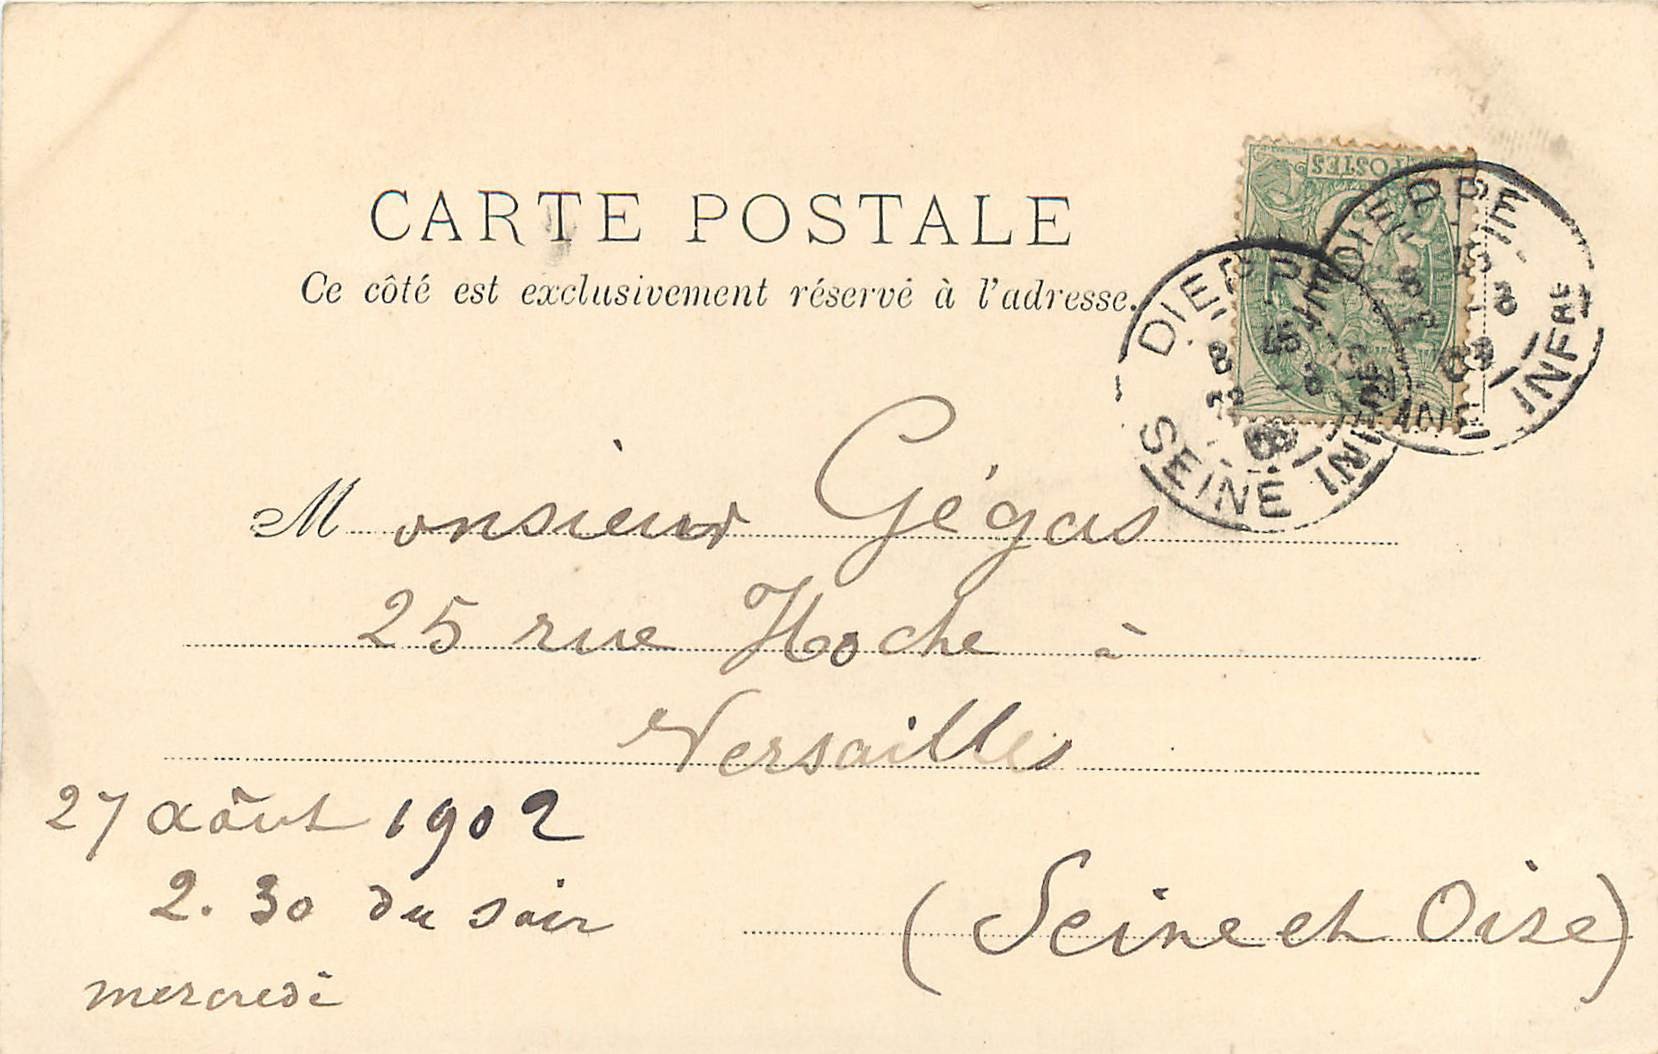 CARTE POSTALE
Ce côté est exclusivement réservé à l'adresse.
POSTES
DIEPPE
SEINE INFRE
DIEPPE
SEINE INF
Monsieur Gégas
25 rue Hoche à
Versailles
27 août 1902
2.30 du soir
mercredi
(Seine et Oise)